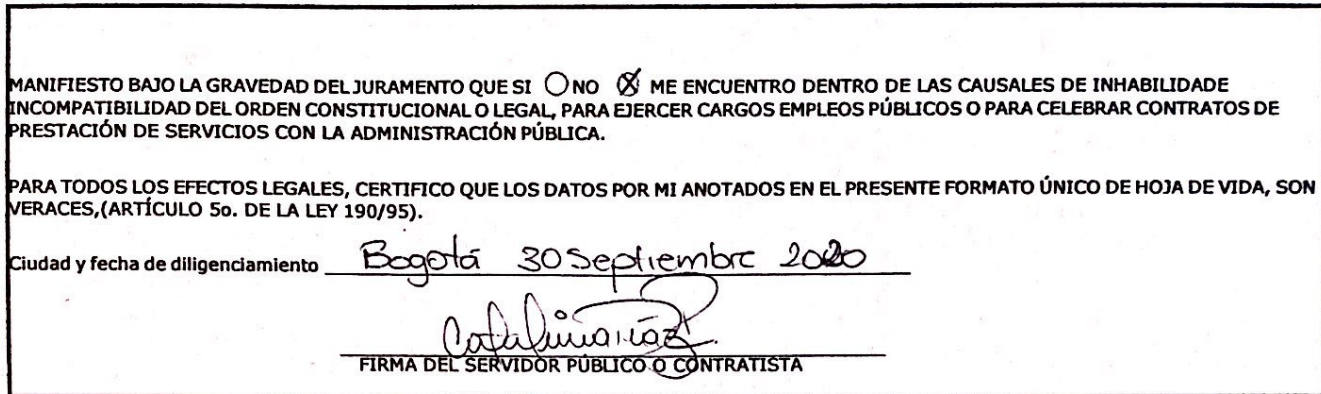 MANIFIESTO BAJO LA GRAVEDAD DEL JURAMENTO QUE SI NO X ME ENCUENTRO DENTRO DE LAS CAUSALES DE INHABILIDADE
INCOMPATIBILIDAD DEL ORDEN CONSTITUCIONAL O LEGAL, PARA EJERCER CARGOS EMPLEOS PÚBLICOS O PARA CELEBRAR CONTRATOS DE
PRESTACIÓN DE SERVICIOS CON LA ADMINISTRACIÓN PÚBLICA.
PARA TODOS LOS EFECTOS LEGALES, CERTIFICO QUE LOS DATOS POR MI ANOTADOS EN EL PRESENTE FORMATO ÚNICO DE HOJA DE VIDA, SON
VERACES,(ARTÍCULO 5o. DE LA LEY 190/95).
Ciudad y fecha de diligenciamiento Bogotá 30 Septiembre 2020
FIRMA DEL SERVIDOR PÚBLICO O CONTRATISTA